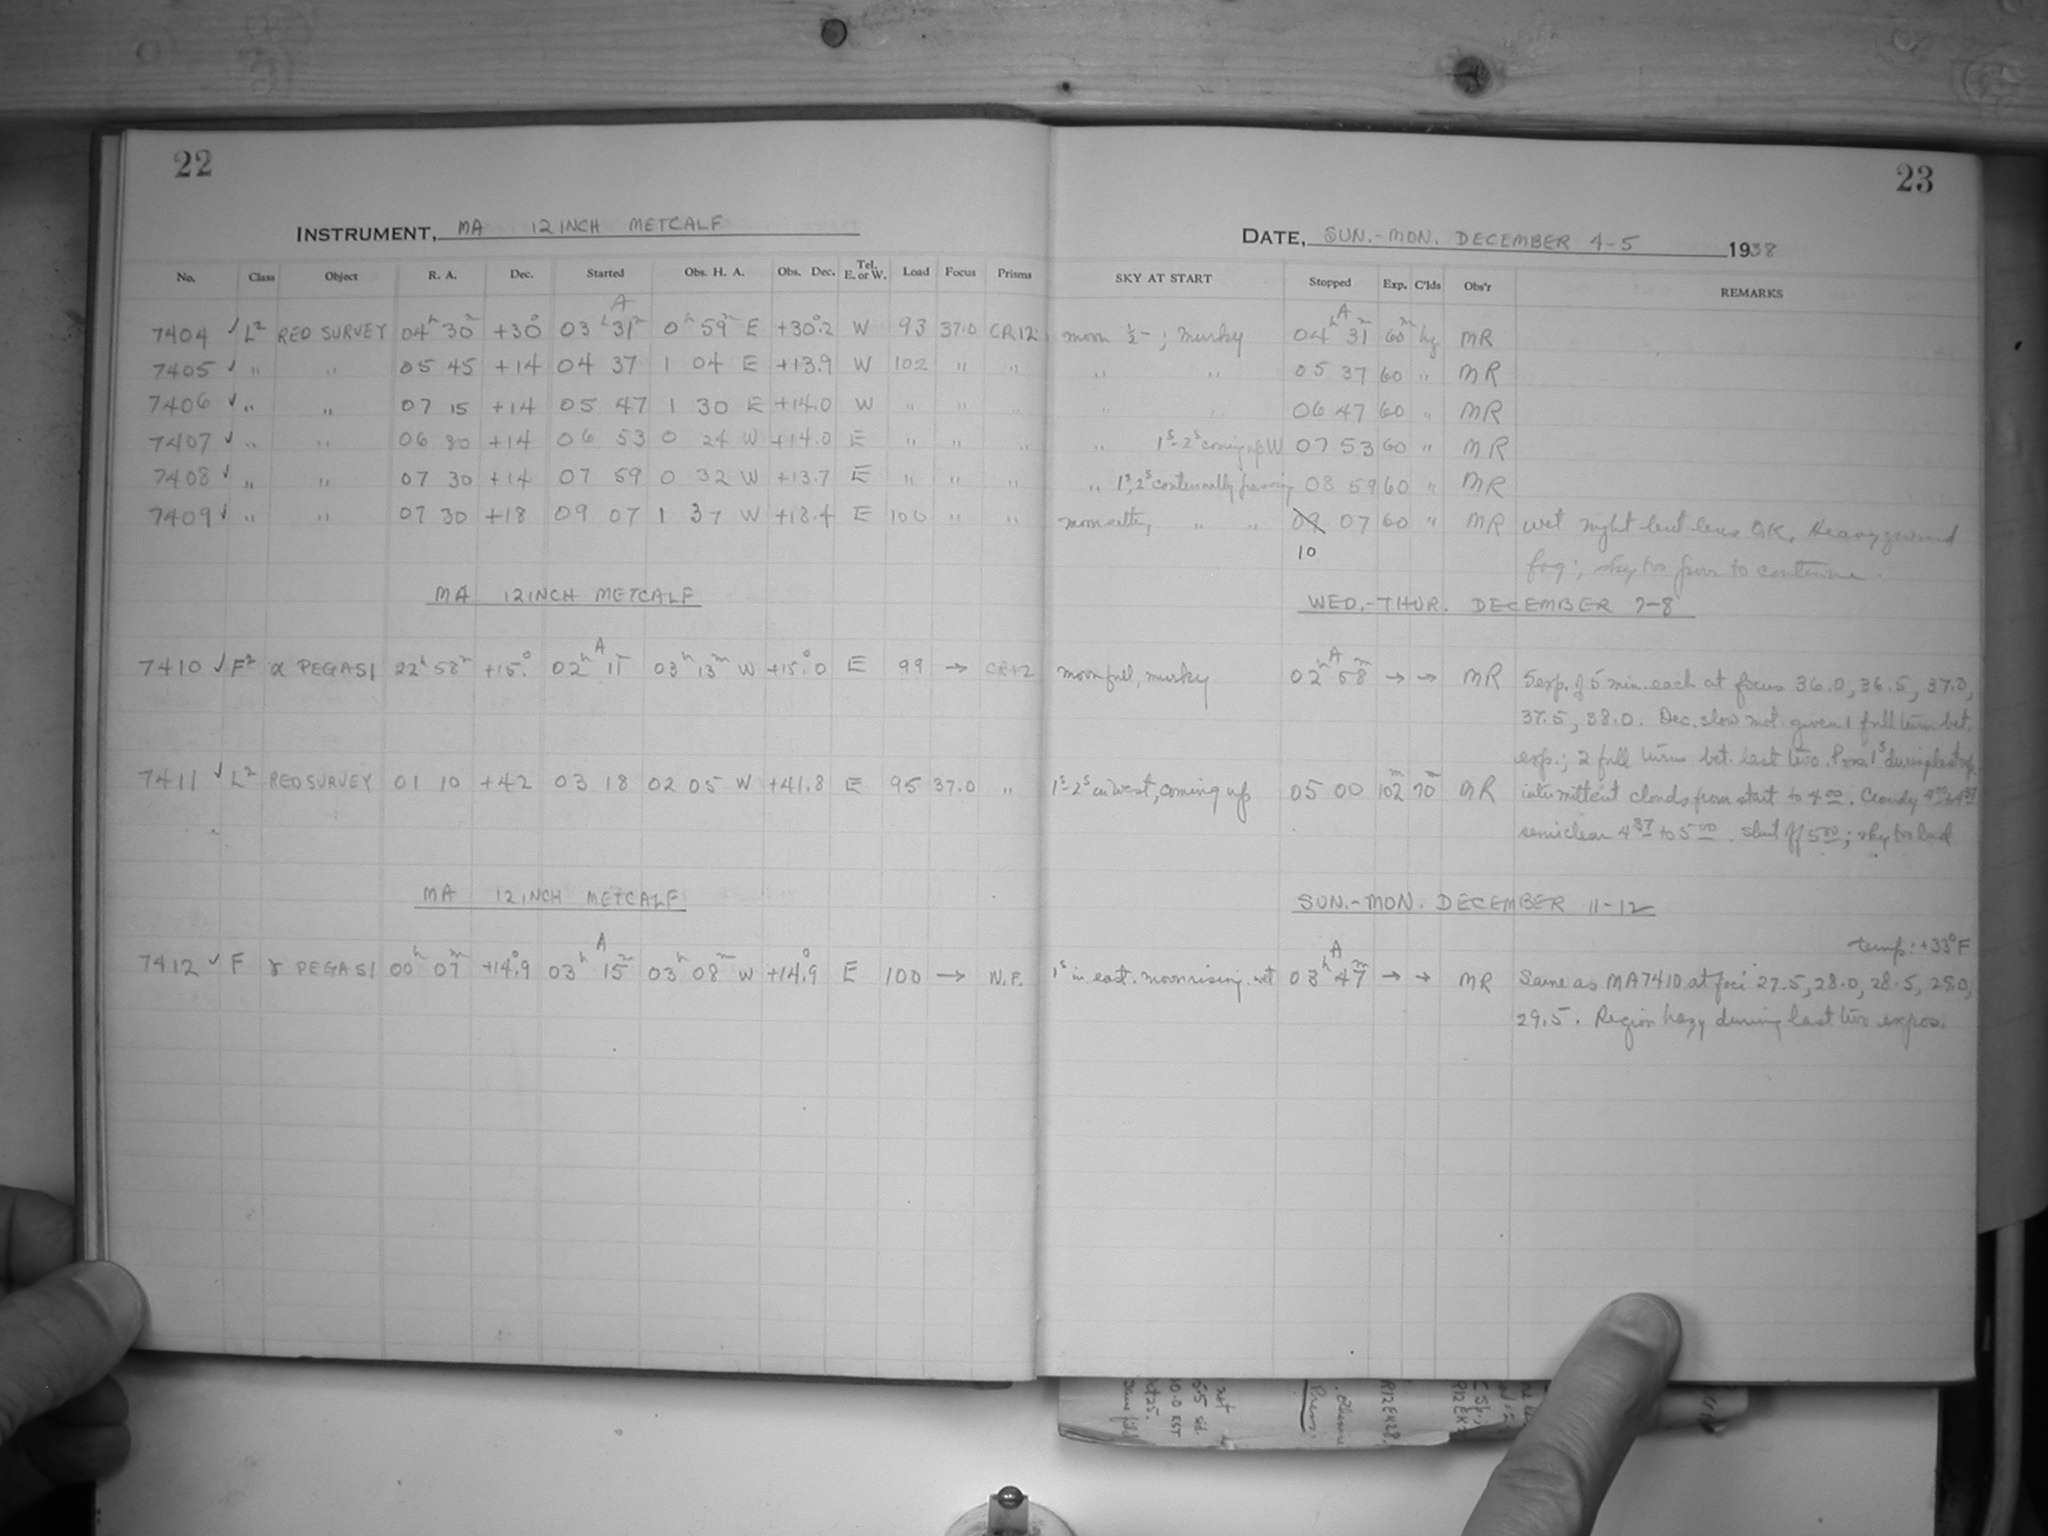 22
23
INSTRUMENT, MA 12 INCH METCALF
DATE, SUN.-MON. DECEMBER 4-5 1938
No. Class Object R. A. Dec. Started Obs. H. A. Obs. Dec. Tel. E. or W. Load Focus Prisms SKY AT START Stopped Exp. C'lds Obs'r REMARKS
7404 ✓ L² RED SURVEY 04ʰ 30ᵐ +30° 03ʰ 31ᵐ A 0ʰ 59ᵐ E +30°.2 W 93 37.0 CR12 moon ½-; murky 04ʰ 31ᵐ A 60ᵐ hg MR
7405 ✓ " " 05 45 +14 04 37 1 04 E +13.9 W 102 " " " " 05 37 60 " MR
7406 ✓ " " 07 15 +14 05 47 1 30 E +14.0 W " " " " " 06 47 60 " MR
7407 ✓ " " 06 30 +14 06 53 0 24 W +14.0 E " " " " 1ˢ-2ˢ coming up W 07 53 60 " MR
7408 ✓ " " 07 30 +14 07 59 0 32 W +13.7 E " " " " 1ˢ, 2ˢ continually passing 08 59 60 " MR
7409 ✓ " " 07 30 +18 09 07 1 37 W +18.4 E 100 " " moon setting " " 09 07 60 " MR wet night but lens OK. Heavy ground
10
fog; sky too poor to continue.
MA 12 INCH METCALF WED.-THUR. DECEMBER 7-8
7410 ✓ F² α PEGASI 22ʰ 58ᵐ +15.° 02ʰ 11ᵐ A 03ʰ 13ᵐ W +15.°0 E 99 → CR12 moon full, murky 02ʰ 58ᵐ A → → MR 5 exp. of 5 min. each at focus 36.0, 36.5, 37.0,
37.5, 38.0. Dec. slow mot. given 1 full turn bet.
exp.; 2 full turns bet. last two. 1ˢ during last
7411 ✓ L² RED SURVEY 01 10 +42 03 18 02 05 W +41.8 E 95 37.0 " 1ˢ-2ˢ in west, coming up 05 00 102ᵐ 70ᵐ MR intermittent clouds from start to 4⁰⁰. Cloudy
semiclear 4³⁷ to 5⁰⁰. Shut off 5⁰⁰; sky too bad
MA 12 INCH METCALF SUN.-MON. DECEMBER 11-12
temp: +33°F
7412 ✓ F γ PEGASI 00ʰ 07ᵐ +14°.9 03ʰ 15ᵐ A 03ʰ 08ᵐ W +14°.9 E 100 → N.P. 1ˢ in east. moon rising. wet 03ʰ 47ᵐ A → → MR Same as MA7410 at foci 27.5, 28.0, 28.5, 29.0,
29.5. Region hazy during last two expos.